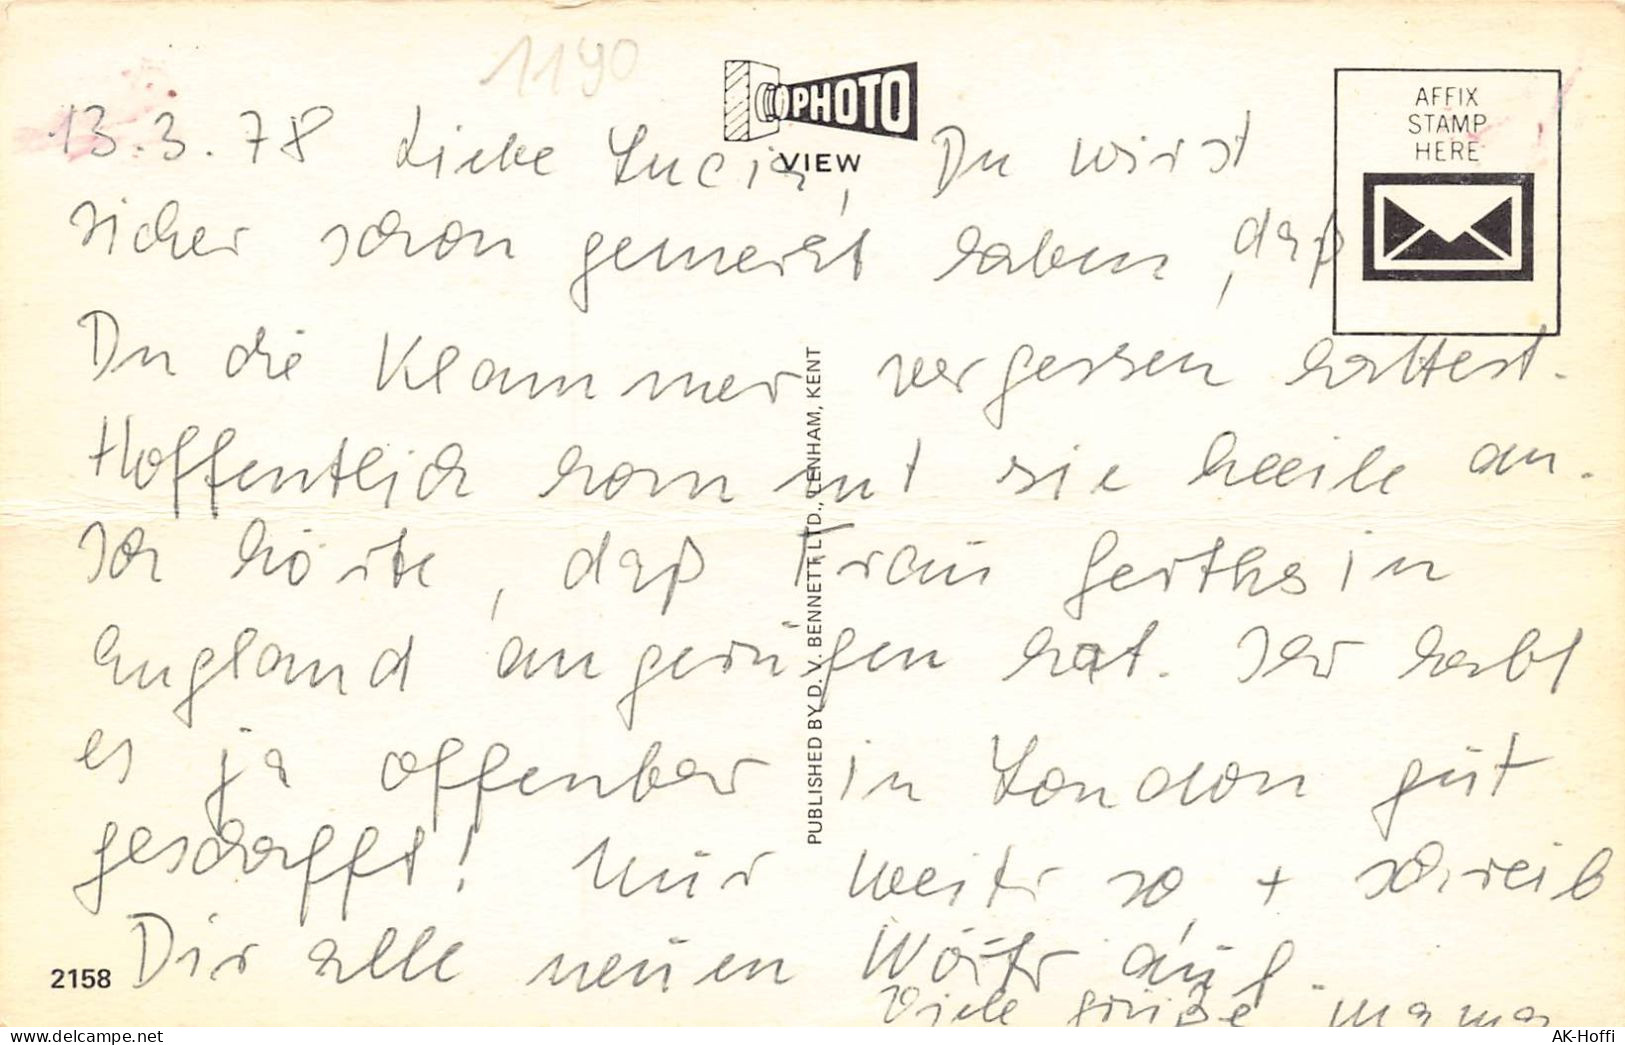 1190
PHOTO
VIEW
AFFIX
STAMP
HERE
13.3.78 Liebe Lucia, Du wirst
sicher schon gemerkt haben, daß
Du die Klammer vergessen hattest.
Hoffentlich kommt sie heile an.
Ich hörte, daß Frau Gerths in
England angerufen hat. Ihr habt
es ja offenbar in London gut
geschafft! Nur weiter so + schreib
Dir alle neuen Wörter auf.
Viele Grüße Mama
PUBLISHED BY D. V. BENNETT LTD., LENHAM, KENT
2158
AK-Hoffi